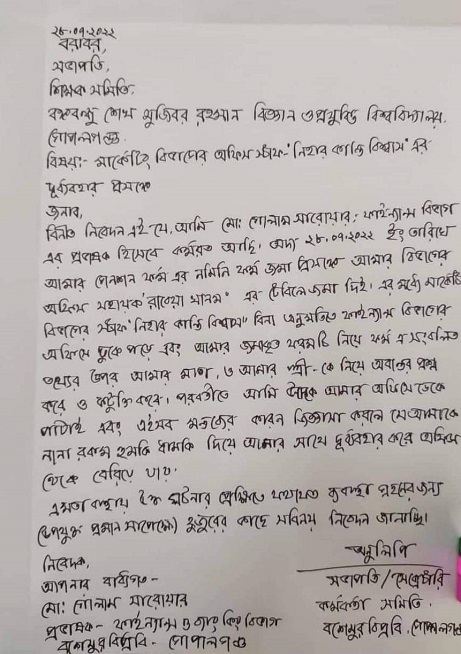 ২৮.০৭.২০২২
বরাবর,
সভাপতি,
শিক্ষক সমিতি.
বঙ্গবন্ধু শেখ মুজিবর রহমান বিজ্ঞান ও প্রযুক্তি বিশ্ববিদ্যালয়.
গোপালগঞ্জ.
বিষয়:- মার্কেটিং বিভাগের অফিস স্টাফ-"নিহার কান্তি বিশ্বাস" এর
দুর্ব্যবহার প্রসঙ্গে
জনাব,
বিনীত নিবেদন এই যে, আমি মো: গোলাম সারোয়ার; ফাইন্যান্স বিভাগ
এর প্রভাষক হিসেবে কর্মরত আছি. অদ্য ২৮.০৭.২০২২ ইং তারিখে
আমার পেনশন ফর্ম এর নমিনি ফর্ম জমা প্রসঙ্গে আমার বিভাগের
অফিস সহায়ক "রাবেয়া খানম" এর টেবিলে জমা দিই. এর মধ্যে মার্কেটিং
বিভাগের স্টাফ "নিহার কান্তি বিশ্বাস" বিনা অনুমতিতে ফাইন্যান্স বিভাগের
অফিসে ঢুকে পড়ে এবং আমার জমাকৃত ফরমটি নিয়ে ফর্ম এ সংবলিত
তথ্যের উপর আমার মাতা, ও আমার স্ত্রী-কে নিয়ে অবান্তর প্রশ্ন
করে ও কটুক্তি করে. পরবর্তীতে আমি উনাকে আমার অফিসে ডেকে
পাঠাই এবং এইসব মন্তব্যের কারন জিজ্ঞাসা করলে সে আমাকে
নানা রকম হুমকি ধামকি দিয়ে আমার সাথে দুর্ব্যবহার করে অফিস
থেকে বেরিয়ে যায়.
এমতাবস্থায় উক্ত ঘটনার প্রেক্ষিতে যথাযথ ব্যবস্থা গ্রহনের জন্য
(উপযুক্ত প্রমান সাপেক্ষে) হুজুরের কাছে সবিনয় নিবেদন জানাচ্ছি।
নিবেদক,
আপনার বাধ্যগত-
মো: গোলাম সারোয়ার
প্রভাষক- ফাইন্যান্স ও ব্যাংকিং বিভাগ
বশেমুরবিপ্রবি- গোপালগঞ্জ
অনুলিপি
সভাপতি/সেক্রেটারি
কর্মকর্তা সমিতি.
বশেমুরবিপ্রবি, গোপালগঞ্জ